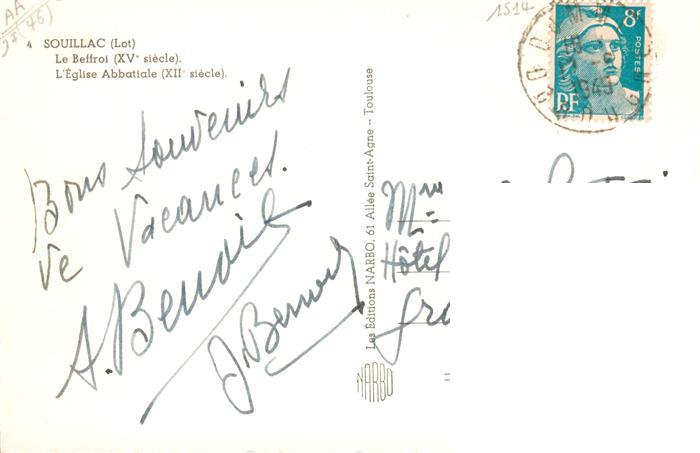 AA
1514
4 SOUILLAC (Lot)
Le Beffroi (XVe siècle).
L'Église Abbatiale (XIIe siècle).
8F
POSTES
RF
1949
Bons Souvenirs
de Vacances.
A. Benoit
J. Benoit
Les Éditions NARBO, 61 Allée Saint-Agne - Toulouse
NARBO
Mme
Hôtel